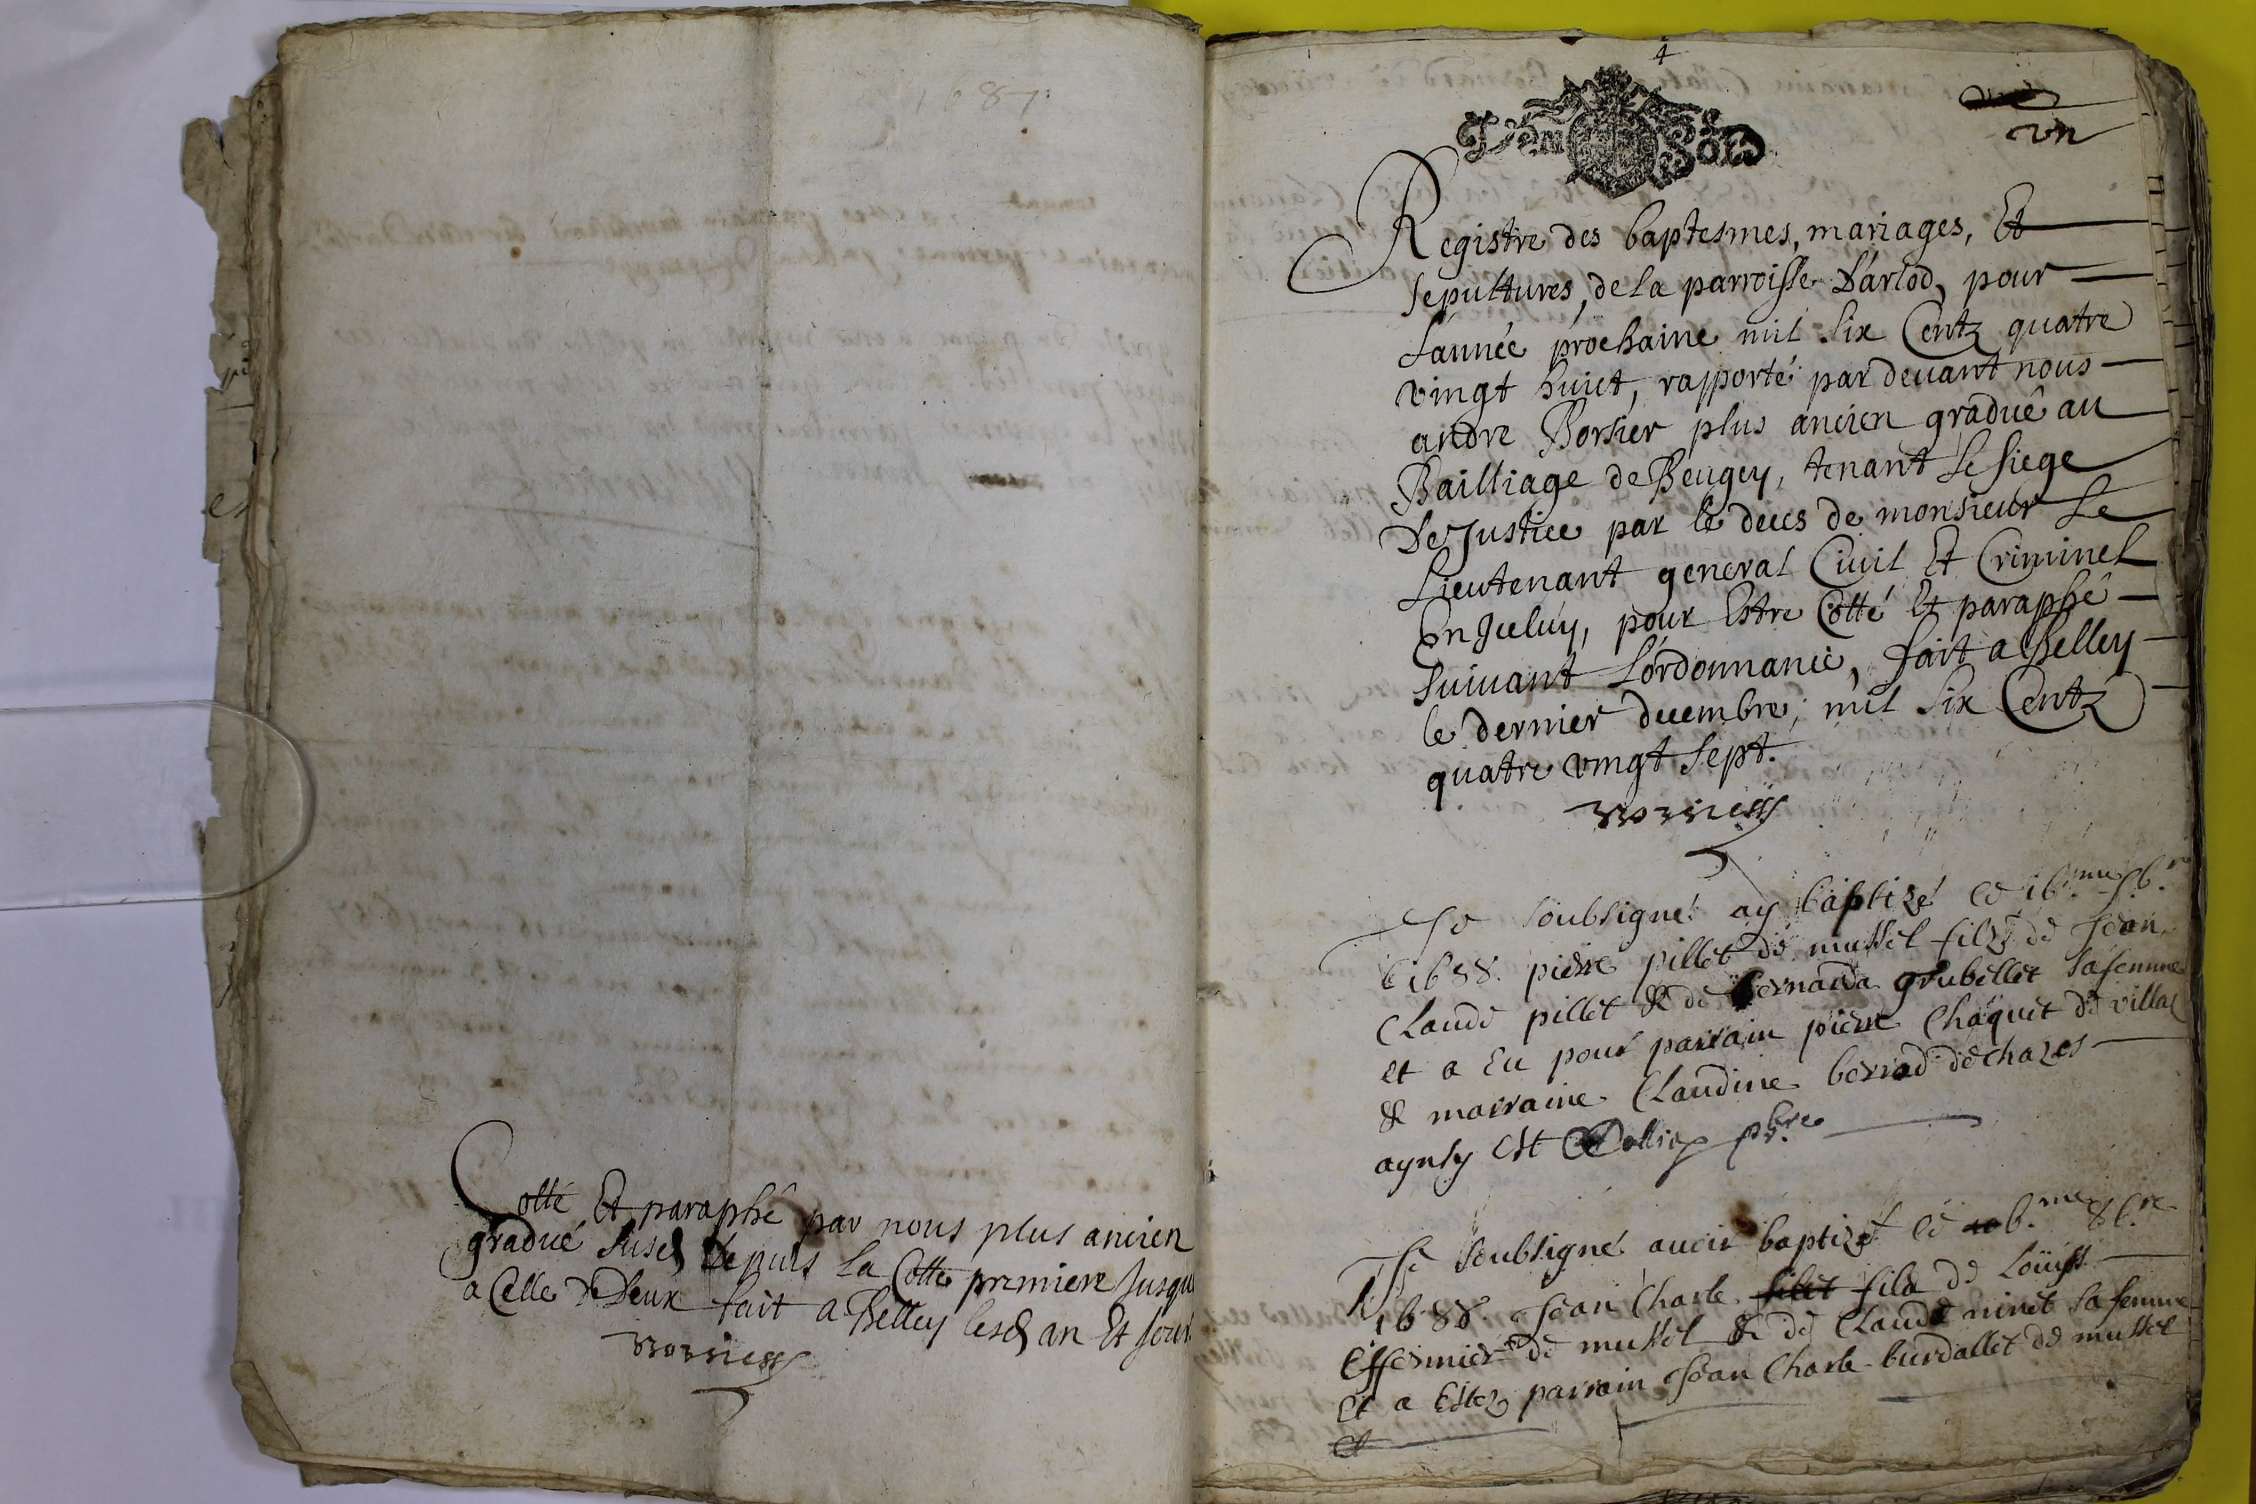 1687
Cotté Et paraphé par nous plus ancien
gradué susd depuis La Cotte premiere Jusqu
a Celle de Deux fait a Belley lesd an Et Jour
Borsier
4
Un
Registre des baptesmes, mariages, Et
sepultures, de La parroisse D'arlod, pour
L'année prochaine mil six Centz quatre
vingt huict, rapporté par devant nous
andre Borsier plus ancien gradué au
Bailliage de Beugey, tenant Le siege
De Justice par le deces de monsieur Le
Lieutenant general Civil Et Criminel
En Jceluy, pour Estre Cotté Et paraphé
suivant L'ordonnance, fait a Belley
le dernier decembre, mil six Centz
quatre vingt sept.
Borsier
Je soubsigné ay baptizé ce 16.me
1688. pierre pillet de mussel filz de Jean
Claude pillet & de bernarda grubellet sa femme
et a Eu pour parrain pierre Chaquet de villar
& marraine Claudine berrod de chazes
aynsy est pbre
Je soubsigné avoir baptizé ce 8b.re
1688 Jean Charle fils de Louiss
Effermier de mussel & de Claude ninet sa femme
et a Estez parrain Jean Charle burdallet de mussel
et